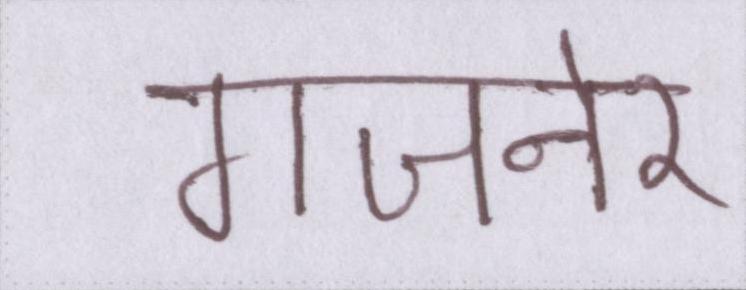 गजनेर